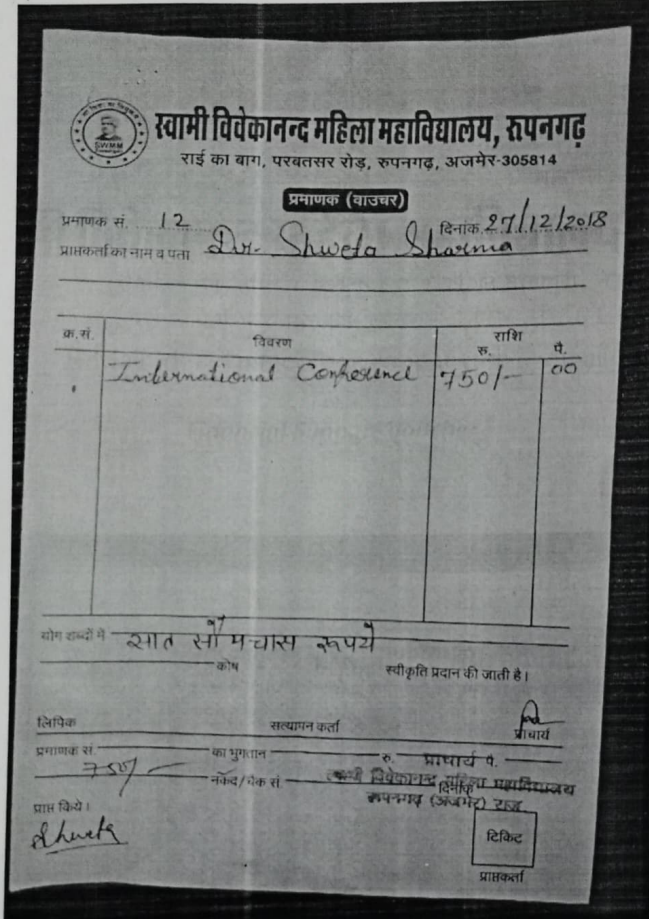 SWMM
स्वामी विवेकानन्द महिला महाविद्यालय, रुपनगढ़
राई का बाग, परबतसर रोड़, रुपनगढ़, अजमेर-305814
प्रमाणक (वाउचर)
प्रमाणक सं. 12 दिनांक 27/12/2018
प्राप्तकर्ता का नाम व पता Dr. Shweta Sharma
क्र.सं. विवरण राशि
रु. पै.
International Conference 750/- 00
योग शब्दों में सात सौ पचास रूपये
कोष स्वीकृति प्रदान की जाती है।
लिपिक सत्यापन कर्ता प्राचार्य
प्रमाणक सं. का भुगतान रु. प्राचार्य पै.
750/- नकद/चैक सं. दिनांक
स्वामी विवेकानन्द महिला महाविद्यालय
रूपनगढ़ (अजमेर) राज
प्राप्त किये।
Shweta
टिकिट
प्राप्तकर्ता